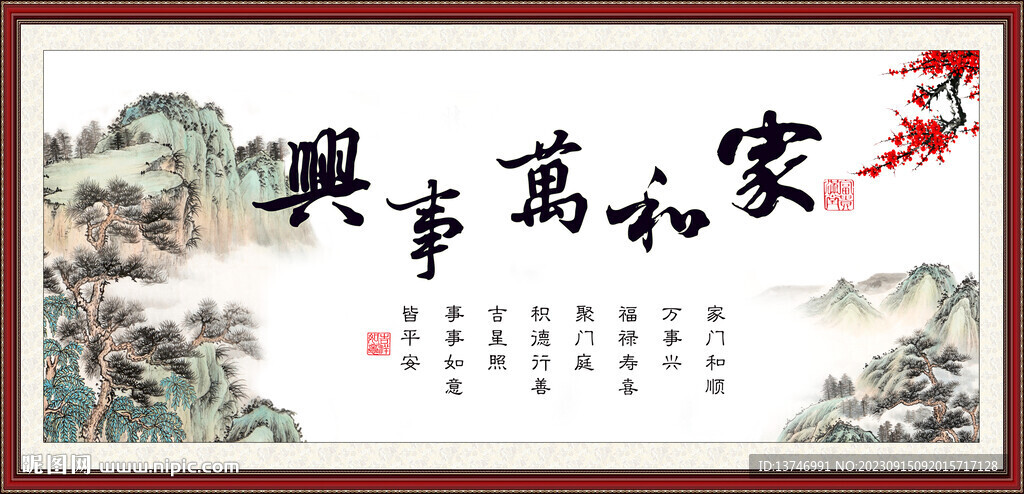 家和萬事興
家门和顺
万事兴
福禄寿喜
聚门庭
积德行善
吉星照
事事如意
皆平安
昵图网 www.nipic.com
ID:13746991 NO:20230915092015717128